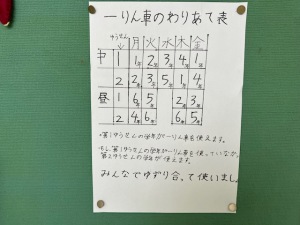 一りん車のわりあて表
ゆうせん 月 火 水 木 金
中 1 1年 2年 3年 4年 1年
2 2年 3年 5年 1年 4年
昼 1 6年 5年 2年 3年
2 4年 6年 6年 5年
・第1ゆうせんの学年が一りん車を使えます。
・もし、第1ゆうせんの学年が一りん車を使っていなかっ
第2ゆうせんの学年が使えます。
みんなでゆずり合って使いまし